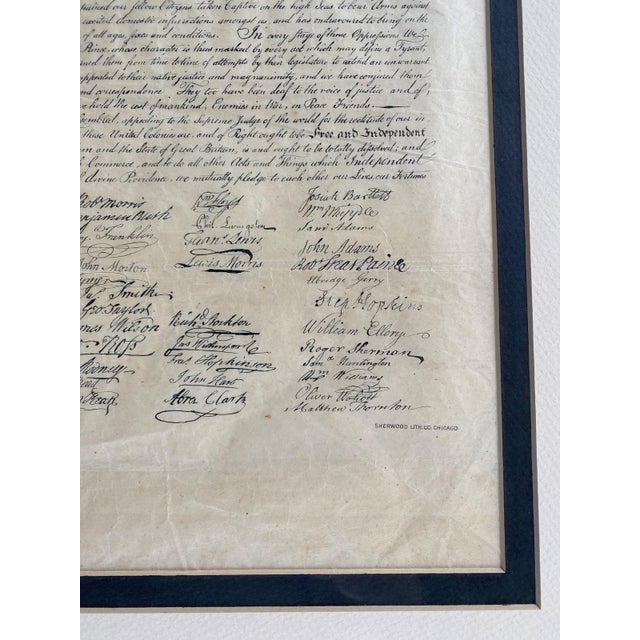 our fellow Citizens taken Captive on the high Seas to bear Arms against
excited domestic insurrections amongst us, and has endeavoured to bring on the
of all ages, sexes and conditions. In every stage of these Oppressions We
Prince, whose character is thus marked by every act which may define a Tyrant,
them from time to time of attempts by their legislature to extend an unwarrant
appealed to their native justice and magnanimity, and we have conjured them
and correspondence. They too have been deaf to the voice of justice and of
hold the rest of mankind, Enemies in War, in Peace Friends.
appealing to the Supreme Judge of the world for the rectitude of our in
these United Colonies are, and of Right ought to be Free and Independent
and the State of Great Britain, is and ought to be totally dissolved; and
Commerce, and to do all other Acts and Things which Independent
divine Providence, we mutually pledge to each other our Lives, our Fortunes
Robt Morris
Benjamin Rush
Franklin
John Morton
Smith
Geo Taylor
James Wilson
Ross
Rodney
Read
Wm Floyd
Phil. Livingston
Frans Lewis
Lewis Morris
Richd Stockton
Jno Witherspoon
Fras Hopkinson
John Hart
Abra Clark
Josiah Bartlett
Wm Whipple
Saml Adams
John Adams
Robt Treat Paine
Elbridge Gerry
Step Hopkins
William Ellery
Roger Sherman
Saml Huntington
Wm Williams
Oliver Wolcott
Matthew Thornton
SHERWOOD LITH. CO. CHICAGO